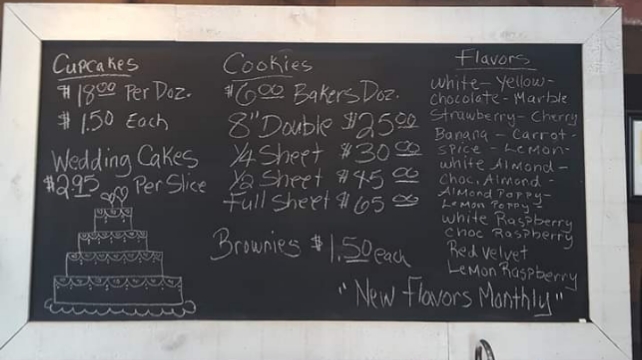 Cupcakes
$18.00 Per Doz.
$1.50 Each
Wedding Cakes
$2.95 Per Slice
Cookies
$6.00 Bakers Doz.
8" Double $25.00
1/4 Sheet $30.00
1/2 Sheet $45.00
Full Sheet $65.00
Brownies $1.50 each
Flavors
White - Yellow -
Chocolate - Marble
Strawberry - Cherry
Banana - Carrot -
Spice - Lemon -
White Almond -
Choc. Almond -
Almond Poppy -
Lemon Poppy -
White Raspberry
Choc Raspberry
Red Velvet
Lemon Raspberry
"New Flavors Monthly"